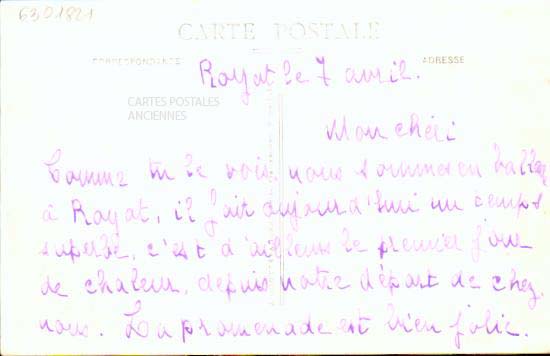 6301821
CARTE POSTALE
CORRESPONDANCE
ADRESSE
Royat le 7 avril.
CARTES POSTALES
ANCIENNES
Mon chéri
Comme tu le vois nous sommes en ballade
à Royat, il fait aujourd'hui un temps
superbe, c'est d'ailleurs le premier jour
de chaleur, depuis notre départ de chez
nous. La promenade est bien jolie.